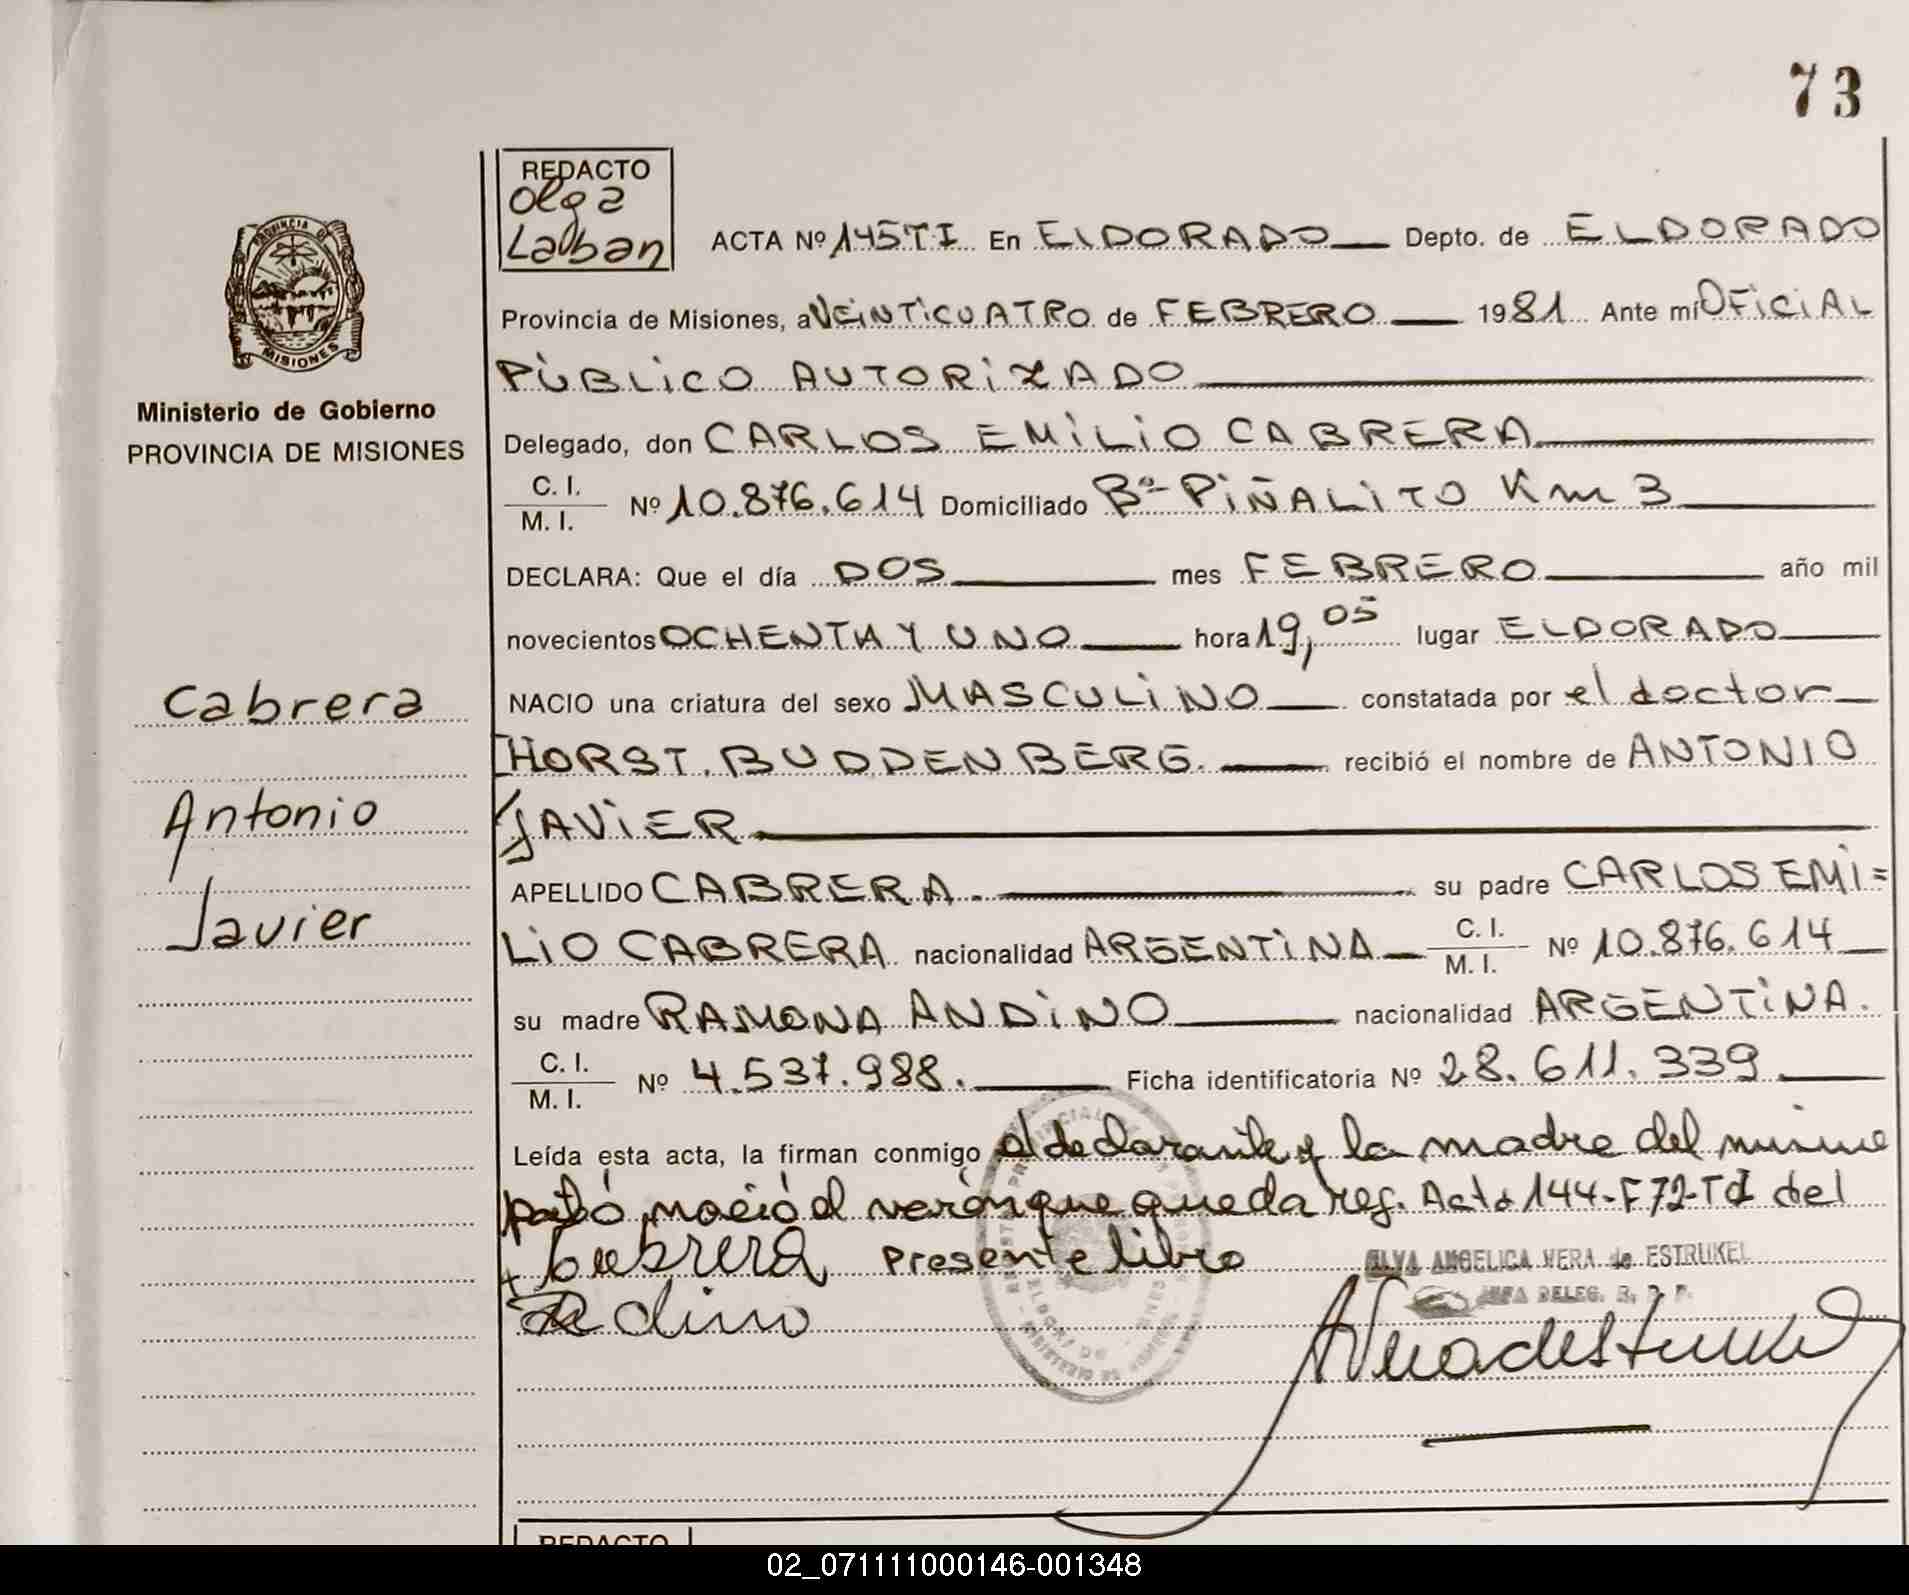 73
REDACTO
Olga
Lalban
ACTA Nº 145TI En ELDORADO Depto. de ELDORADO
PROVINCIA DE
MISIONES
Provincia de Misiones, a VEINTICUATRO de FEBRERO 1981 Ante mí OFICIAL
PÚBLICO AUTORIZADO
Ministerio de Gobierno
PROVINCIA DE MISIONES
Delegado, don CARLOS EMILIO CABRERA
C. I.
M. I. Nº 10.876.614 Domiciliado Bº PIÑALITO Km 3
DECLARA: Que el día DOS mes FEBRERO año mil
novecientos OCHENTA Y UNO hora 19,05 lugar ELDORADO
Cabrera
NACIO una criatura del sexo MASCULINO constatada por el doctor
HORST. BUDDENBERG. recibió el nombre de ANTONIO
Antonio
JAVIER
APELLIDO CABRERA. su padre CARLOS EMI=
Javier
LIO CABRERA nacionalidad ARGENTINA C. I.
M. I. Nº 10.876.614
su madre RAMONA ANDINO nacionalidad ARGENTINA.
C. I.
M. I. Nº 4.537.988. Ficha identificatoria Nº 28.611.339
Leída esta acta, la firman conmigo el declarante y la madre del mismo
nació el verón que queda reg. Acta 144-F72-TI del
Cabrera presente libro
ELVA ANGELICA VERA de ESTRUKEL
JEFA DELEG. R. P. P.
Andino
REDACTO
02_071111000146-001348